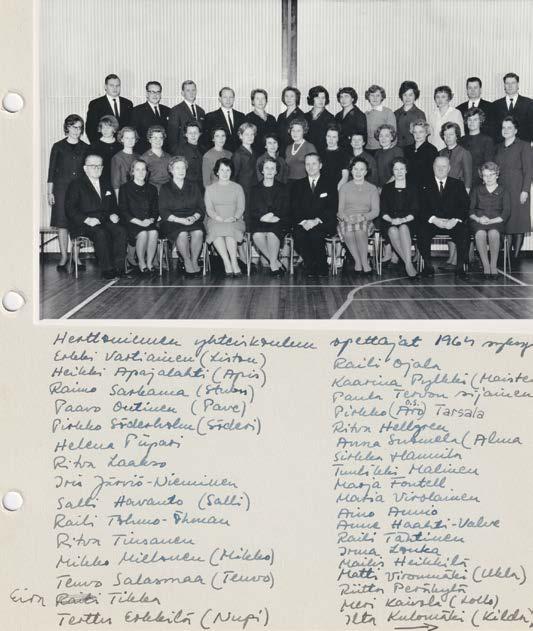 Herttoniemen yhteiskoulun opettajat 1964 syksy
Erkki Vartiainen (Liston)
Heikki Apajalahti (Apis)
Raimo Sarkama
Paavo Outinen (Pave)
Pirkko Söderholm (Söderi)
Helena Piipari
Ritva Laakso
Iris Järviö-Nieminen
Salli Havanto (Salli)
Raili Tolmo-Öhman
Ritva Tiusanen
Mikko Miltonen (Mikko)
Teuvo Salasmaa (Teuvo)
Eira Tikka
Terttu Erkkilä (Nupi)
Raili Ojala
Kaarina Pylkki
Paula Tervon sijainen
Pirkko (Aro) o.s. Tarsala
Ritva Hellgren
Anna Suomela (Alma
Sirkka Hannila
Tuulikki Malinen
Marja Fontell
Maria Virolainen
Aino Aunio
Anne Haahti-Valve
Raili Tantinen
Irma Lonka
Mailis Heikkilä
Matti Viromäki (Ukla)
Riitta Peräkylä
Meri Kaisla (Lollo)
Ilta Kulomäki (Kilda)